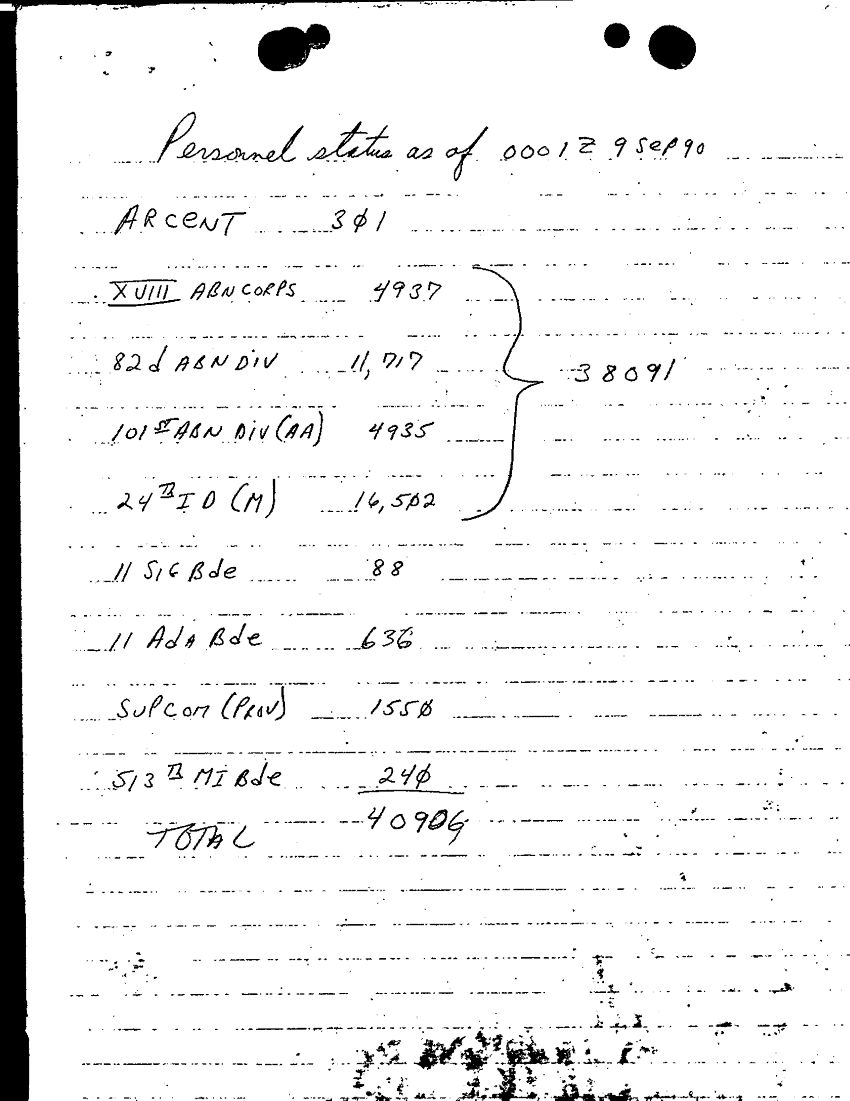 Personnel status as of 0001Z 9 Sep 90
ARCENT 301
XVIII ABN CORPS 4937
82d ABN DIV 11,717
38091
101ST ABN DIV (AA) 4935
24TH ID (M) 16,502
11 SIG Bde 88
11 AdA Bde 636
SUPCOM (PROV) 1550
513TH MI Bde 240
TOTAL 40906